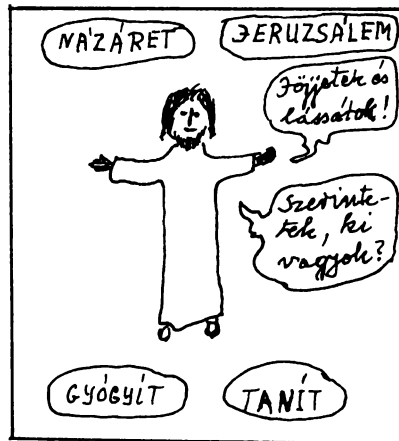 NÁZÁRET
JERUZSÁLEM
Jöjjetek és
lássátok!
Szerinte-
tek, ki
vagyok?
GYÓGYÍT
TANÍT